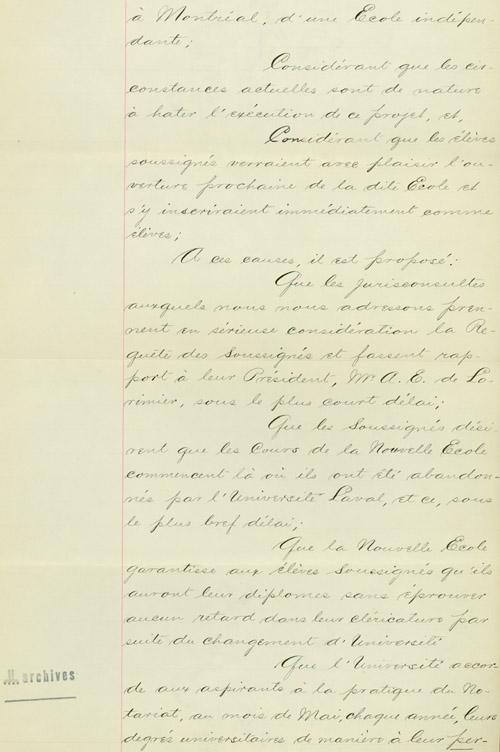 à Montréal, d'une Ecole indépen-
dante;
Considérant que les cir-
constances actuelles sont de nature
à hater l'exécution de ce projet, et,
Considérant que les élèves
soussignés verraient avec plaisir l'ou-
verture prochaine de la dite Ecole et
s'y inscriraient immédiatement comme
élèves;
A ces causes, il est proposé:
Que les jurisconsultes
auxquels nous nous adressons pren-
nent en sérieuse considération la Re-
quête des soussignés et fassent rap-
port à leur Président, Mr A. E. de Lo-
rimier, sous le plus court délai;
Que les Soussignés dési-
rent que les Cours de la Nouvelle Ecole
commencent là où ils ont été abandon-
nés par l'Université Laval, et ce, sous
le plus bref délai;
Que la Nouvelle Ecole
garantisse aux élèves soussignés qu'ils
auront leur diplomes sans éprouver
aucun retard dans leur cléricature par
suite du changement d'Université
Que l'Université accor-
de aux aspirants à la pratique du No-
tariat, au mois de Mai, chaque année, leurs
degrés universitaires de manière à leur per-
archives